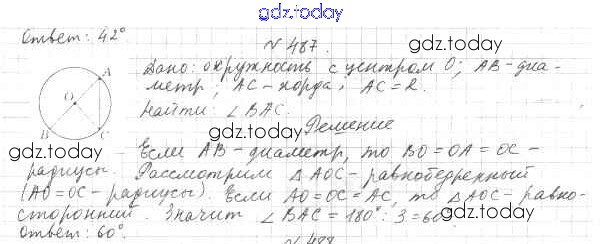 gdz.today
Ответ: 42°
N 487.
gdz.today
Дано: окружность с центром O; AB-диа-
метр; AC-хорда, AC=R.
Найти: ∠BAC.
Решение
Если AB-диаметр, то BO=OA=OC-
радиусы. Рассмотрим △AOC-равнобедренный
(AO=OC-радиусы). Если AO=OC=AC, то △AOC-равно-
сторонний. Значит ∠BAC=180°:3=60°
Ответ: 60°.
N 488
A
O
B
C
gdz.today
gdz.today
gdz.today
gdz.today
gdz.today
gdz.today